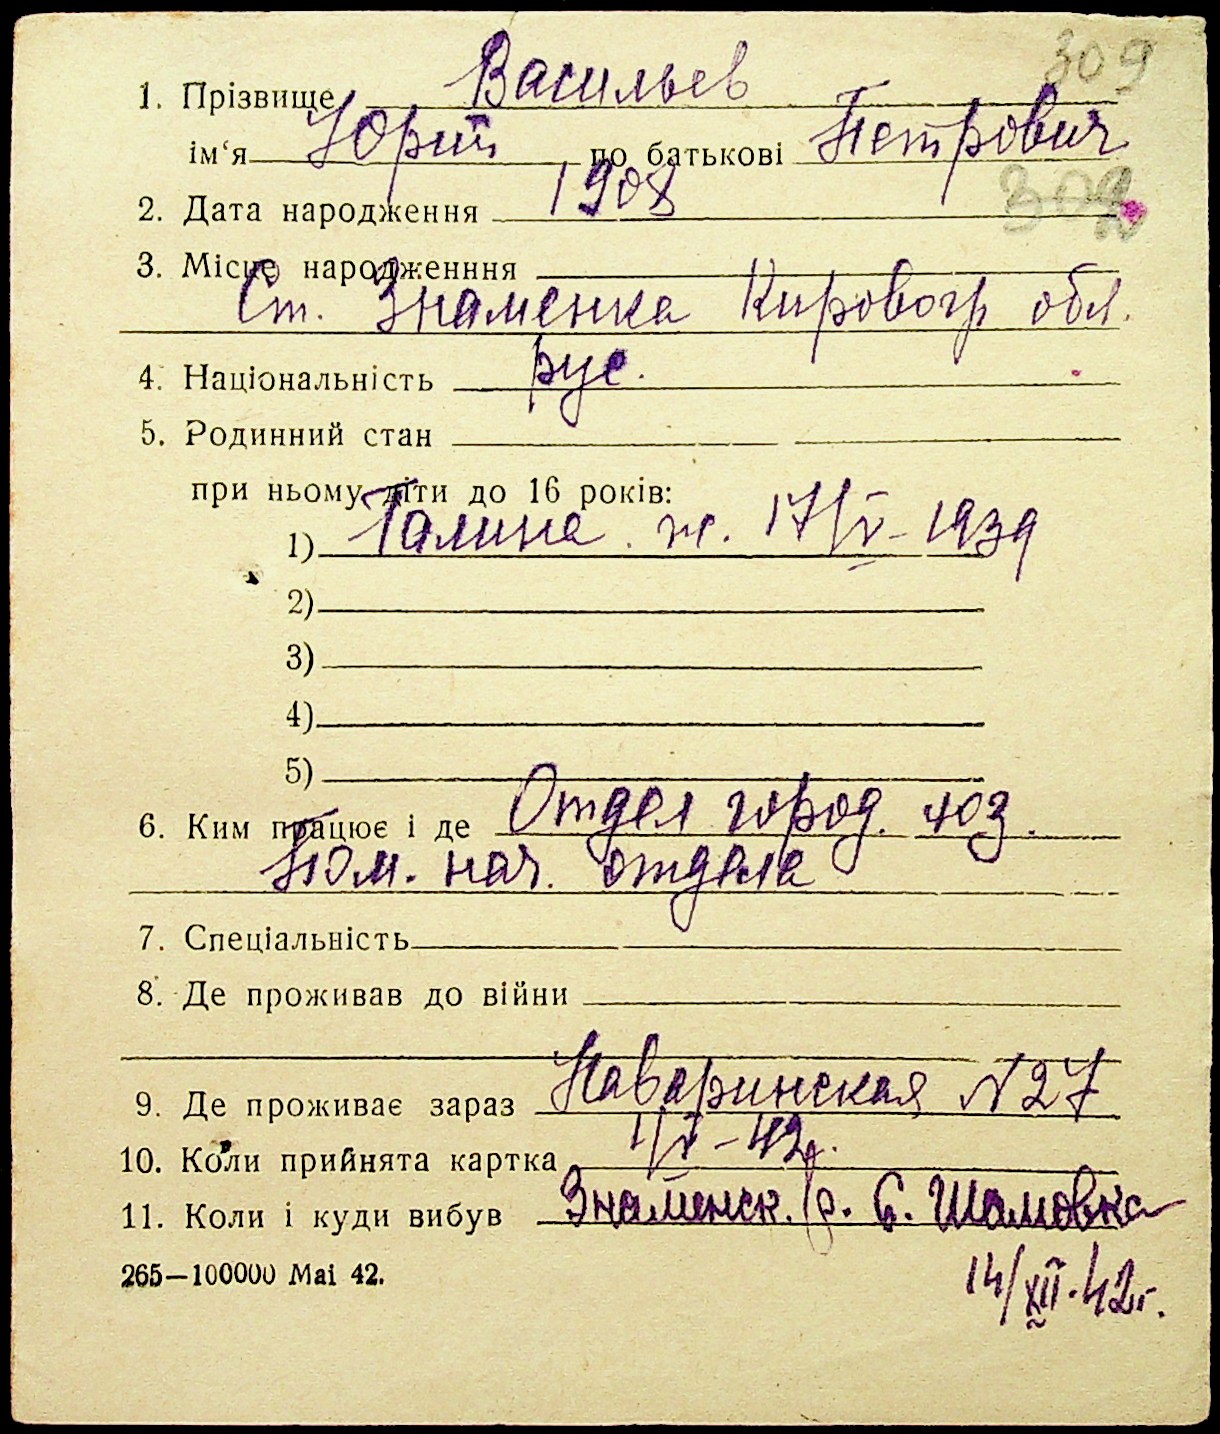 309
1. Прізвище Васильев
ім‘я Юрий по батькові Петрович
2. Дата народження 1908
309
3. Місце народженння
Ст. Знаменка Кировогр обл.
4. Національність рус.
5. Родинний стан
при ньому діти до 16 років:
1) Галина ж. 17/V-1939
2)
3)
4)
5)
6. Ким працює і де Отдел город. хоз.
Пом. нач. отдела
7. Спеціальність
8. Де проживав до війни
9. Де проживає зараз Наваринская N 27
10. Коли прийнята картка 1/V-42г.
11. Коли і куди вибув Знаменск. р. С. Шамовка
14/XII.42г.
265—100000 Mai 42.